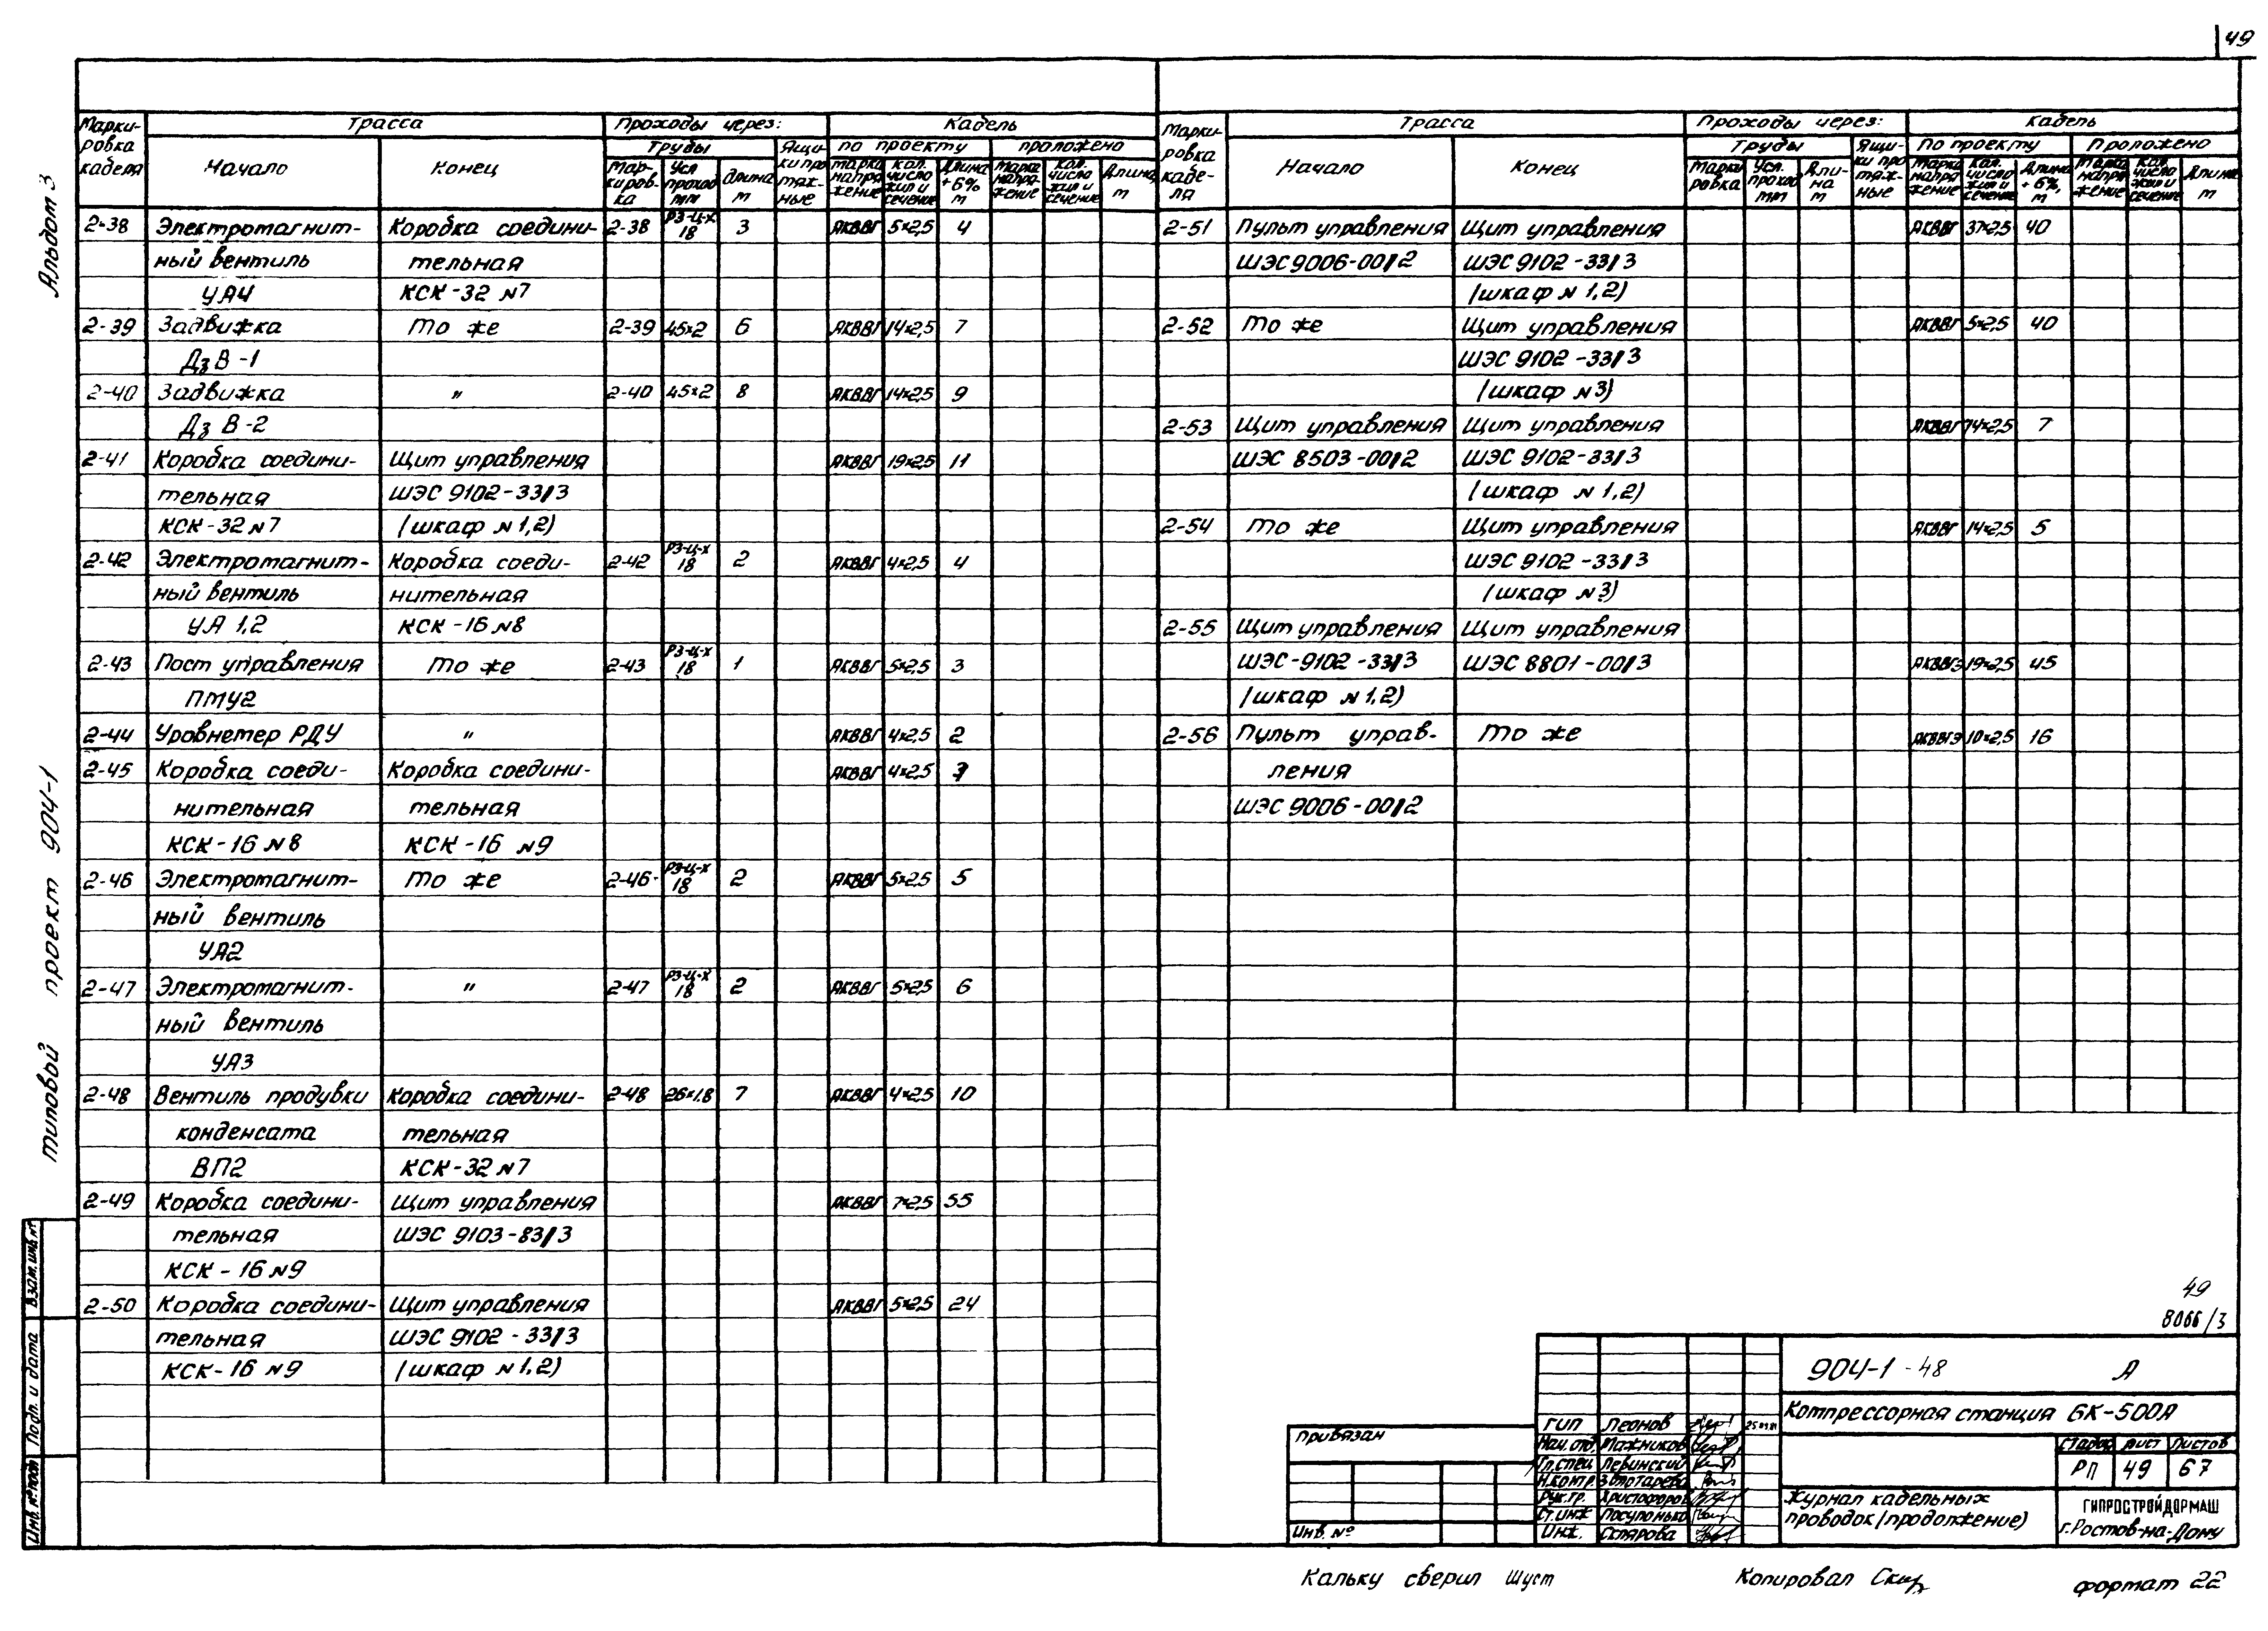 49
Альбом 3
типовой проект 904-1
Марки-ровка кабеля | Трасса | Проходы через: | Кабель
Начало | Конец | Трубы | Ящи-ки про тяж-ные | по проекту | проложено
Мар-киров-ка | Усл проход мм | Длина м | Марка напря-жение | Кол. число жил и сечение | Длина +6% м | Марка напря-жение | Кол. число жил и сечение | Длина м
2-38 Электромагнит- Коробка соедини- 2-38 РЗ-Ц-Х 18 3 АКВВГ 5×2,5 4
ный вентиль тельная
УА4 КСК-32 №7
2-39 Задвижка То же 2-39 45×2 6 АКВВГ 14×2,5 7
Дз В-1
2-40 Задвижка " 2-40 45×2 8 АКВВГ 14×2,5 9
Дз В-2
2-41 Коробка соедини- Щит управления АКВВГ 19×2,5 11
тельная ШЭС 9102-33/3
КСК-32 №7 (шкаф №1,2)
2-42 Электромагнит- Коробка соеди- 2-42 РЗ-Ц-Х 18 2 АКВВГ 4×2,5 4
ный вентиль нительная
УА 1,2 КСК-16 №8
2-43 Пост управления То же 2-43 РЗ-Ц-Х 18 1 АКВВГ 5×2,5 3
ПМУ2
2-44 Уровнемер РДУ " АКВВГ 4×2,5 2
2-45 Коробка соеди- Коробка соедини- АКВВГ 4×2,5
нительная тельная
КСК-16 №8 КСК-16 №9
2-46 Электромагнит- То же 2-46 РЗ-Ц-Х 18 2 АКВВГ 5×2,5 5
ный вентиль
УА2
2-47 Электромагнит- " 2-47 РЗ-Ц-Х 18 2 АКВВГ 5×2,5 6
ный вентиль
УА3
2-48 Вентиль продувки Коробка соедини- 2-48 26×1.8 7 АКВВГ 4×2,5 10
конденсата тельная
ВП2 КСК-32 №7
2-49 Коробка соедини- Щит управления АКВВГ 7×2,5 55
тельная ШЭС 9103-83/3
КСК-16 №9
2-50 Коробка соедини- Щит управления АКВВГ 5×2,5 24
тельная ШЭС 9102-33/3
КСК-16 №9 (шкаф №1,2)
Марки-ровка кабе-ля | Трасса | Проходы через: | Кабель
Начало | Конец | Трубы | Ящи-ки про тяж-ные | По проекту | Проложено
Марки ровка | Усл. проход мм | Дли-на м | Марка напря жение | Кол. число жил и сечение | Длина +6%, м | Марка напря-жение | Кол. число жил и сечение | Длина м
2-51 Пульт управления Щит управления АКВВГ 37×2,5 40
ШЭС 9006-00/2 ШЭС 9102-33/3
(шкаф №1,2)
2-52 То же Щит управления АКВВГ 5×2,5 40
ШЭС 9102-33/3
(шкаф №3)
2-53 Щит управления Щит управления АКВВГ 14×2,5 7
ШЭС 8503-00/2 ШЭС 9102-33/3
(шкаф №1,2)
2-54 То же Щит управления АКВВГ 14×2,5 5
ШЭС 9102-33/3
(шкаф №3)
2-55 Щит управления Щит управления
ШЭС-9102-33/3 ШЭС 8801-00/3 АКВВГЭ 19×2,5 45
(шкаф №1,2)
2-56 Пульт управ- То же АКВВГЭ 10×2,5 16
ления
ШЭС 9006-00/2
49
8066/3
904-1-48 А
Компрессорная станция 6К-500А
Стадия Лист Листов
РП 49 67
Журнал кабельных
проводок (продолжение)
ГИПРОСТРОЙДОРМАШ
г.Ростов-на-Дону
ГИП Леонов
Нач. отд. Мажников
Гл.спец Левинский
Н.контр. Золотарева
Рук.гр. Христофоров
Ст.инж Посупонько
Инж. Склярова
Привязан
Инв. №
Взам. инв. №
Подп. и дата
Инв. № подл
Кальку сверил Шуст
Копировал
формат 22